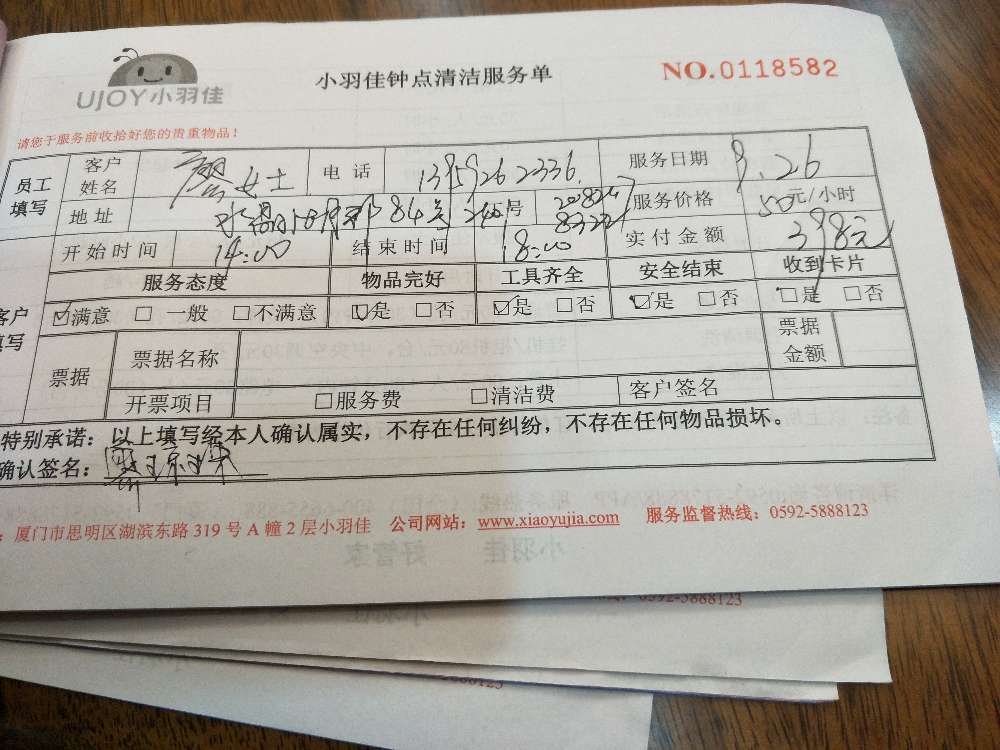 UJOY小羽佳
小羽佳钟点清洁服务单
NO.0118582
请您于服务前收拾好您的贵重物品!
员工填写 客户姓名 廖女士 电 话 13959262336. 服务日期 9.26
地址 84 240 号 服务价格 50元/小时
开始时间 14:00 结束时间 18:00 实付金额 398元
服务态度 物品完好 工具齐全 安全结束 收到卡片
客户填写 ☑满意 □ 一般 □不满意 ☑是 □否 ☑是 □否 ☑是 □否 □是 □否
票据 票据名称 票据金额
开票项目 □服务费 □清洁费 客户签名
特别承诺:以上填写经本人确认属实,不存在任何纠纷,不存在任何物品损坏。
确认签名:
:厦门市思明区湖滨东路 319 号 A 幢 2 层小羽佳 公司网站:www.xiaoyujia.com 服务监督热线:0592-5888123
0592-5888123